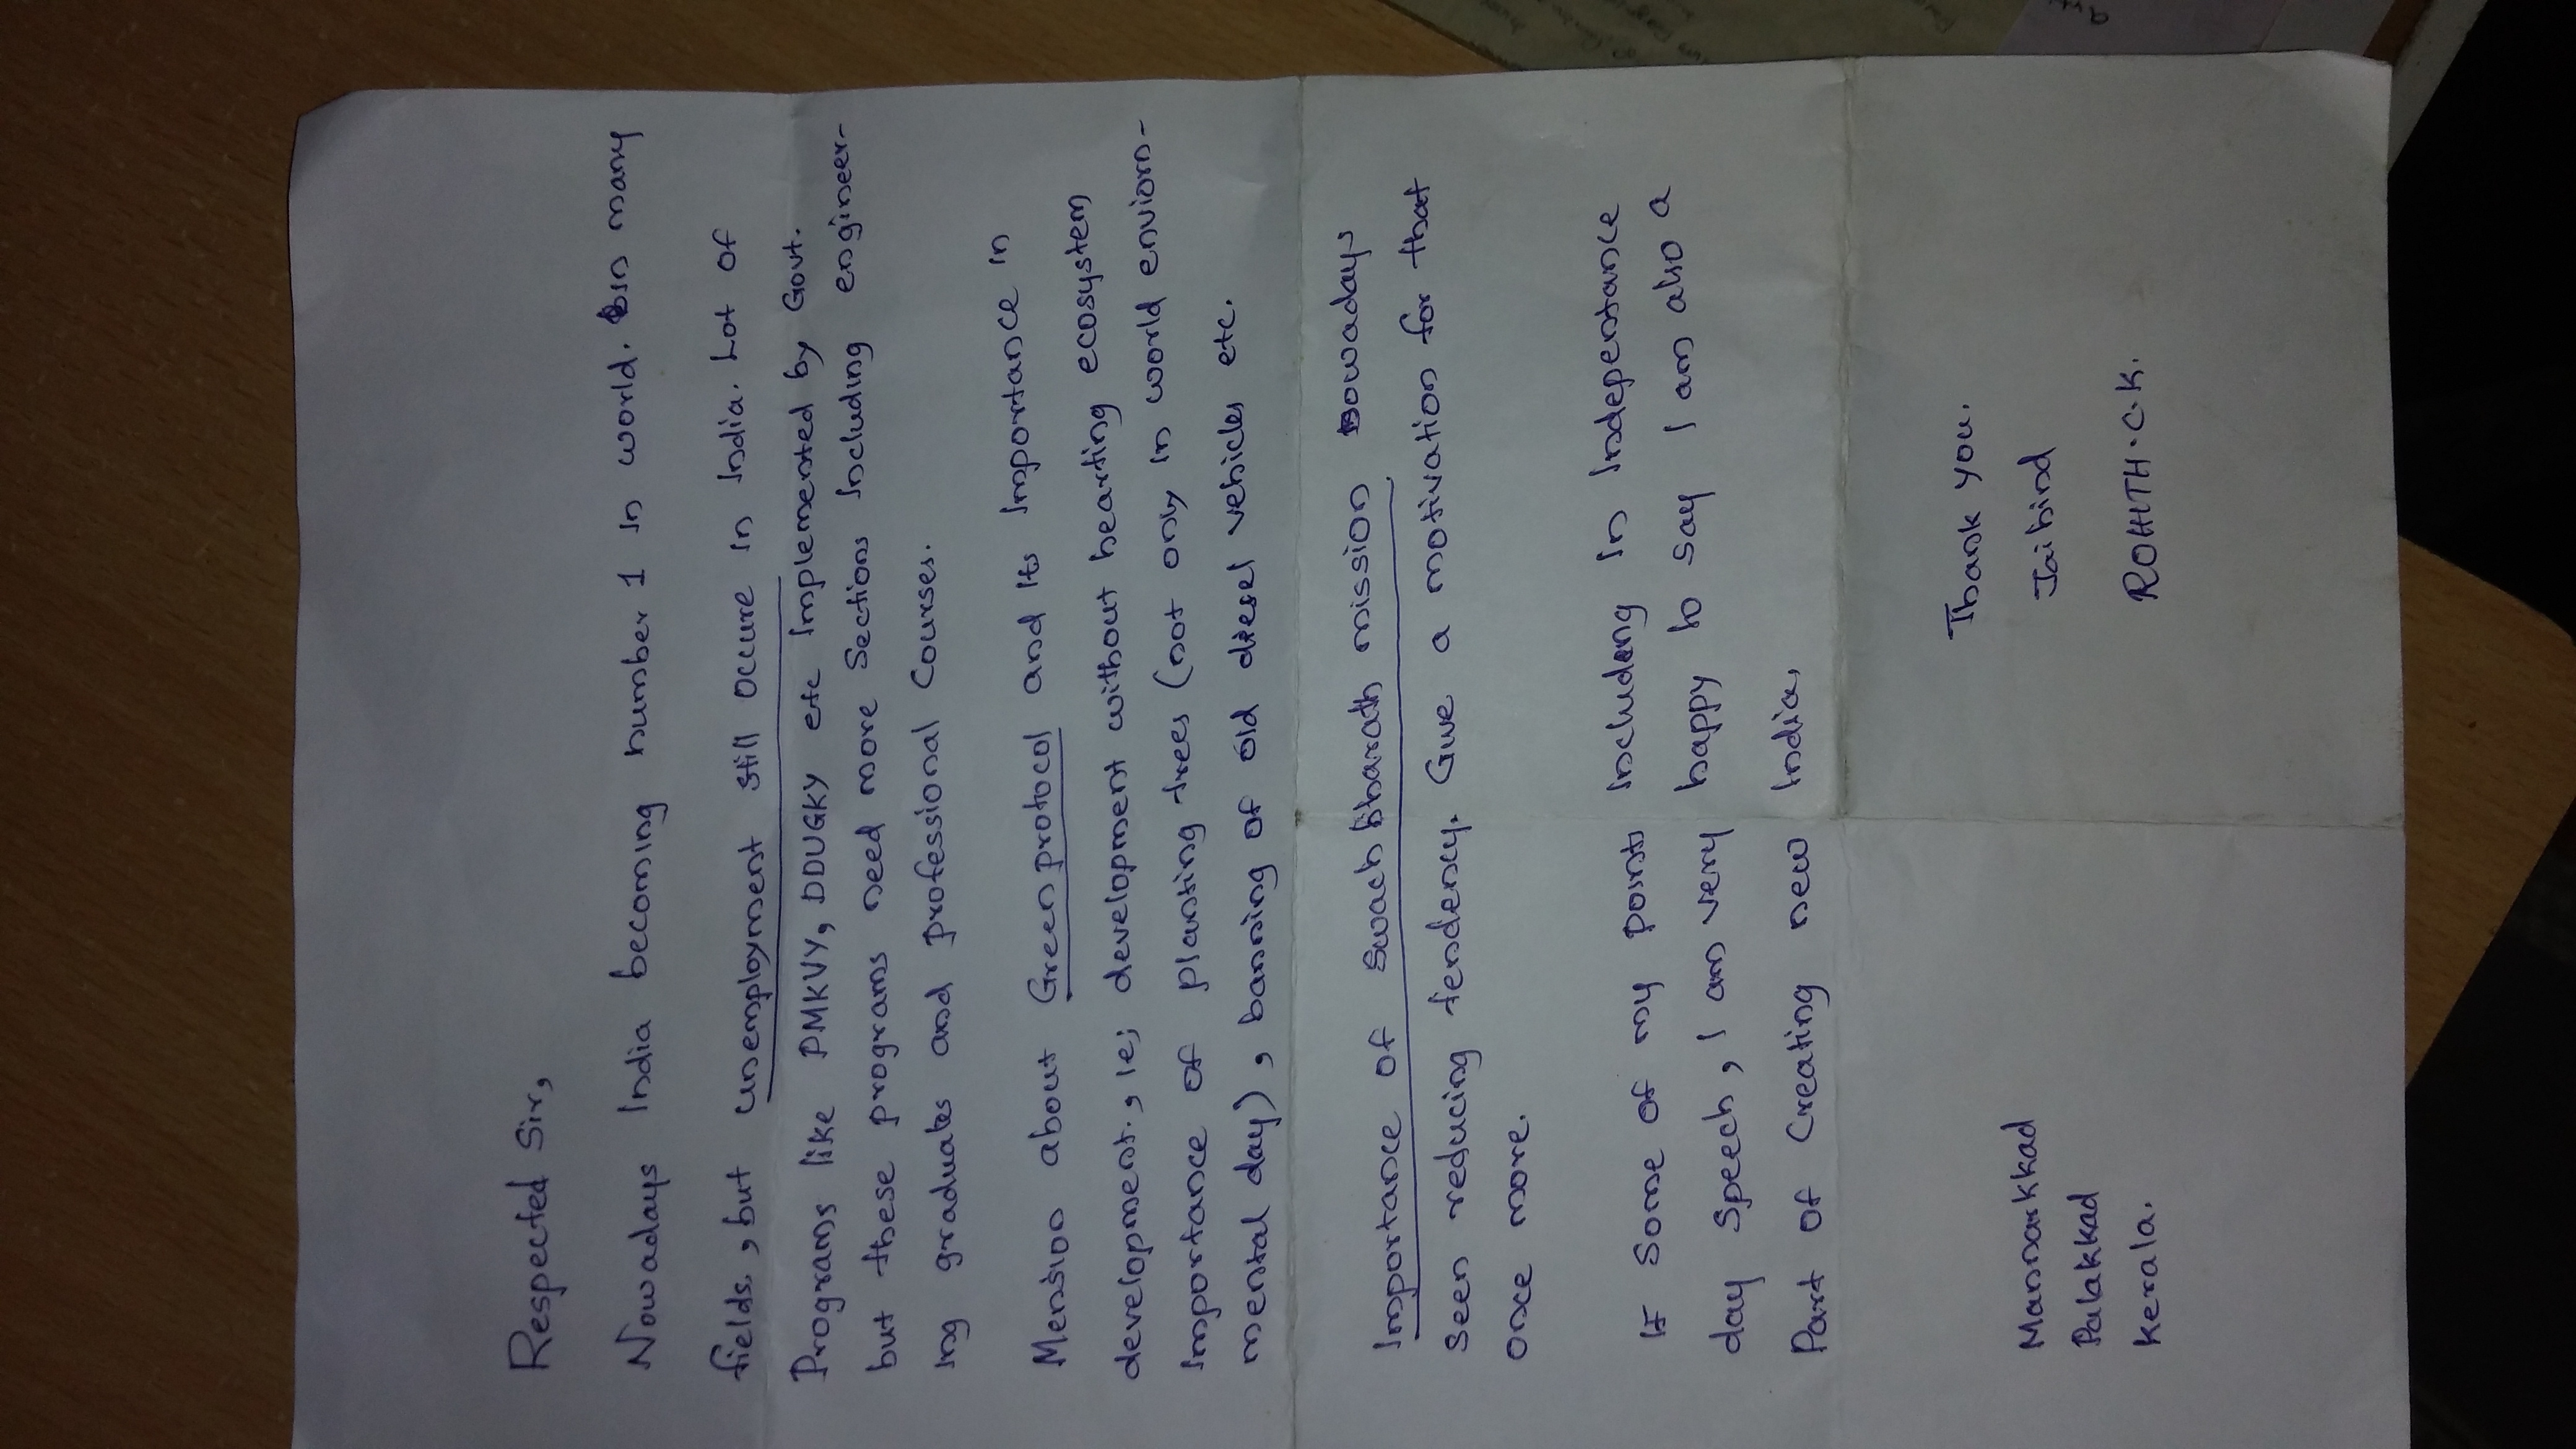 Respected Sir,
Nowadays India becoming number 1 in world. In many
fields, but unemployment still occure in India. Lot of
Programs like PMKVY, DDUGKY etc implemented by Govt.
but these programs need more Sections including engineer-
ing graduates and professional Courses.
Mension about Green protocol and its importance in
development., ie; development without hearting ecosystem
importance of planting trees (not only in world enviorn-
mental day), banning of old diesel vehicles etc.
Importance of swach bharath mission nowadays
seen reducing tendency. Give a motivation for that
once more.
If some of my points including in Independance
day speech, I am very happy to say I am also a
Part of Creating new India,
Thank you.
Jaihind
ROHITH.C.K.
Mannarkkad
Palakkad
Kerala.